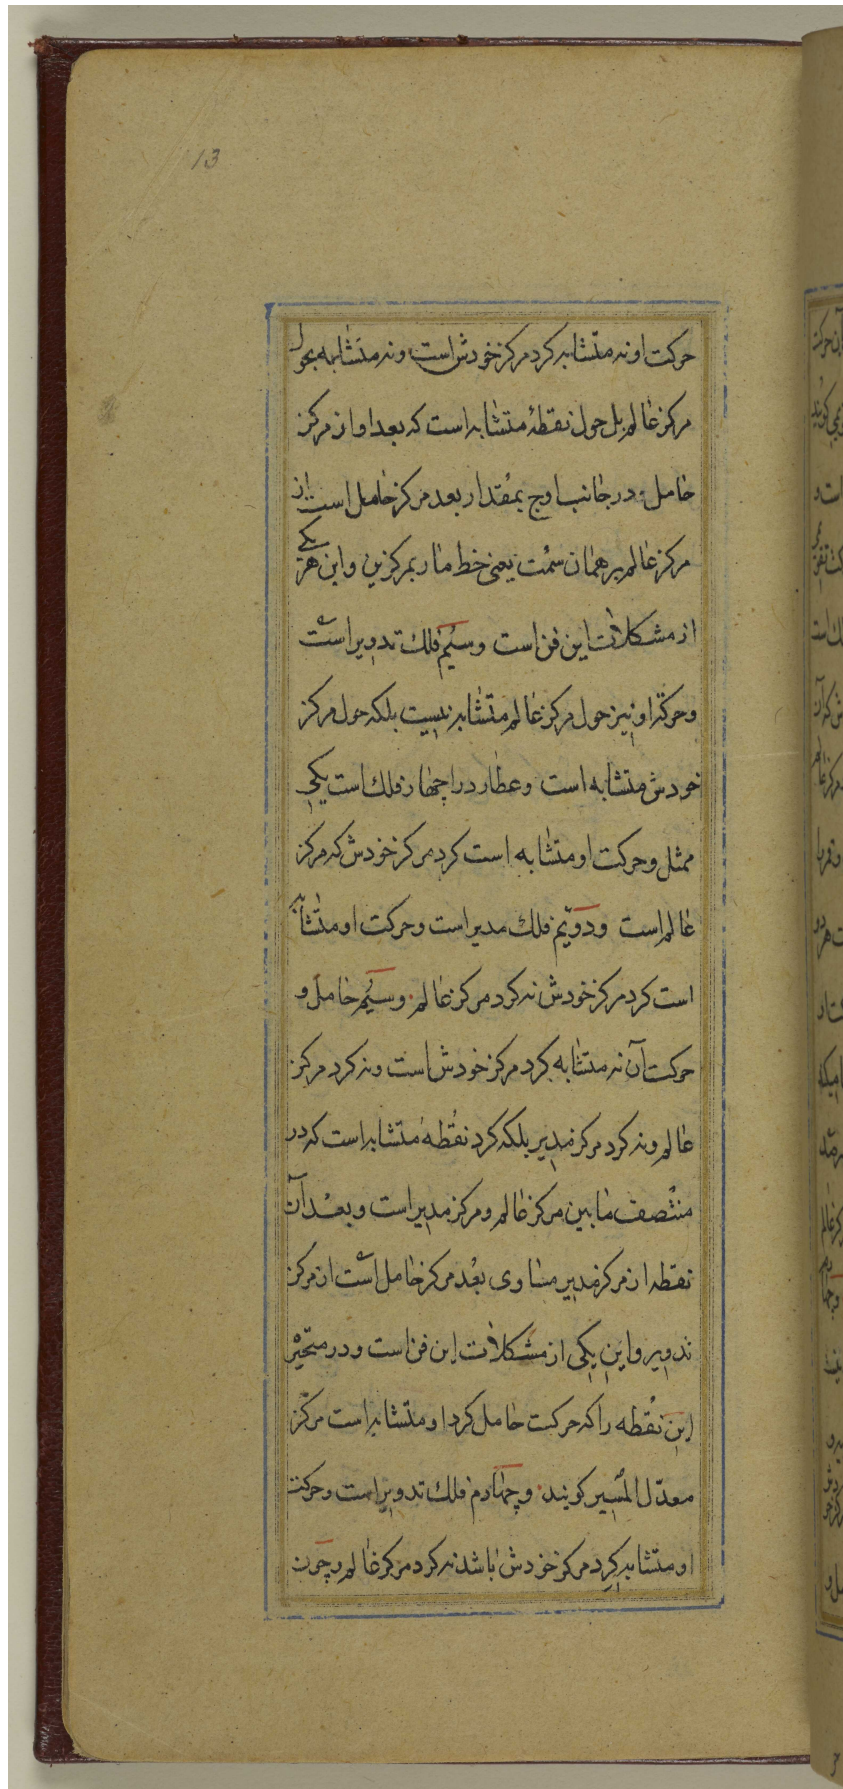 13
حرکت او نه متشابه کرد مرکز خودش است و نه متشابه بحول
مرکز عالم بل حول نقطهٔ متشابه است که بعد او از مرکز
حامل در جانب اوج بمقدار بعد مرکز حامل است از
مرکز عالم بر همان سمت یعنی خط مار بمرکزین و این هر یکی
از مشکلات این فن است و سیُم فلک تدویر است
و حرکة او نیز حول مرکز عالم متشابه نیست بلکه حول مرکز
خودش متشابه است و عطارد را چهار فلک است یکی
ممثل و حرکت او متشابه است کرد مرکز خودش که مرکز
عالم است و دویّم فلک مدیر است و حرکت او متشابه
است کرد مرکز خودش نه کرد مرکز عالم و سیُم حامل و
حرکت آن نه متشابه کرد مرکز خودش است و نه کرد مرکز
عالم و نه کرد مرکز مدیر بلکه کرد نقطه متشابه است که در
منتصف مابین مرکز عالم و مرکز مدیر است و بعد آن
نقطه از مرکز مدیر مساوی بعُد مرکز حامل است از مرکز
تدویر و این یکی از مشکلات این فن است و در متحیّر
این نقُطه را که حرکت حامل کرد او متشابه است مرکز
معدّل المسیر کویند و چهارم فلک تدویر است و حرکت
او متشابه کرد مرکز خودش باشد نه کرد مرکز عالم و چون